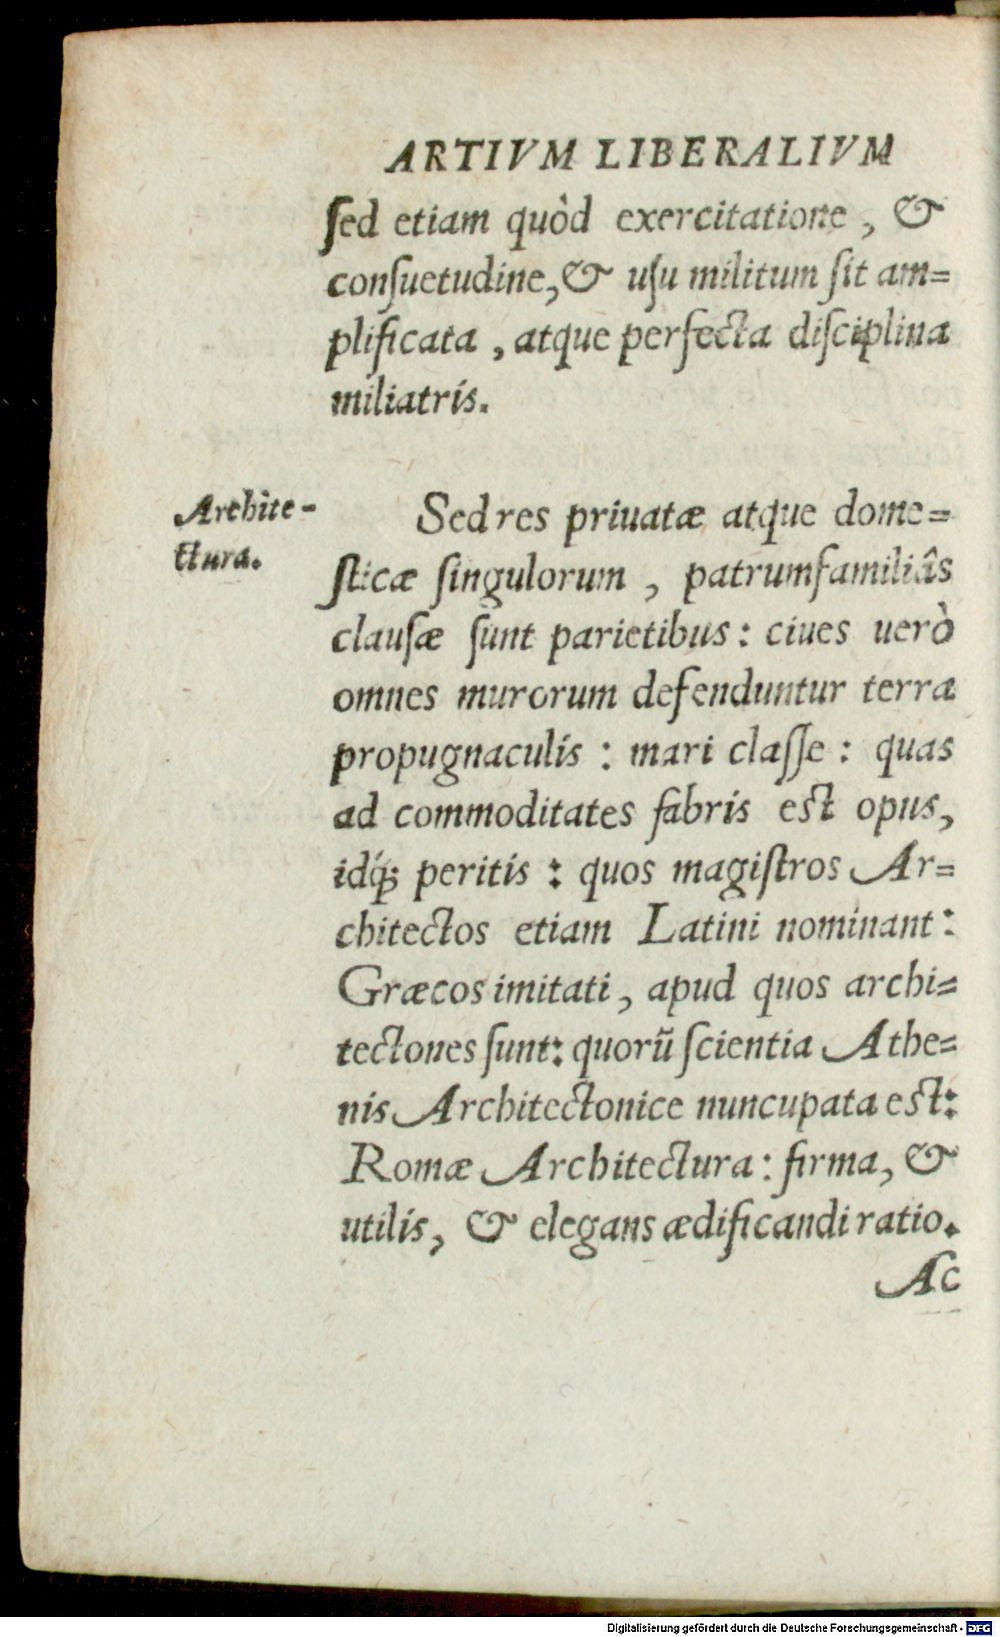 ARTIVM LIBERALIVM
ſed etiam quòd exercitatione, &
conſuetudine, & uſu militum ſit am=
plificata, atque perfecta diſciplina
miliatris.
Archite-
ctura.
Sed res priuatæ atque dome=
ſticæ ſingulorum, patrumfamiliâs
clauſæ ſunt parietibus: ciues uerò
omnes murorum defenduntur terra
propugnaculis: mari claſſe: quas
ad commoditates fabris eſt opus,
idq́; peritis: quos magiſtros Ar=
chitectos etiam Latini nominant:
Græcos imitati, apud quos archi=
tectones ſunt: quorũ ſcientia Athe=
nis Architectonice nuncupata eſt:
Romæ Architectura: firma, &
utilis, & elegans ædificandi ratio.
Ac
Digitalisierung gefördert durch die Deutsche Forschungsgemeinschaft - DFG